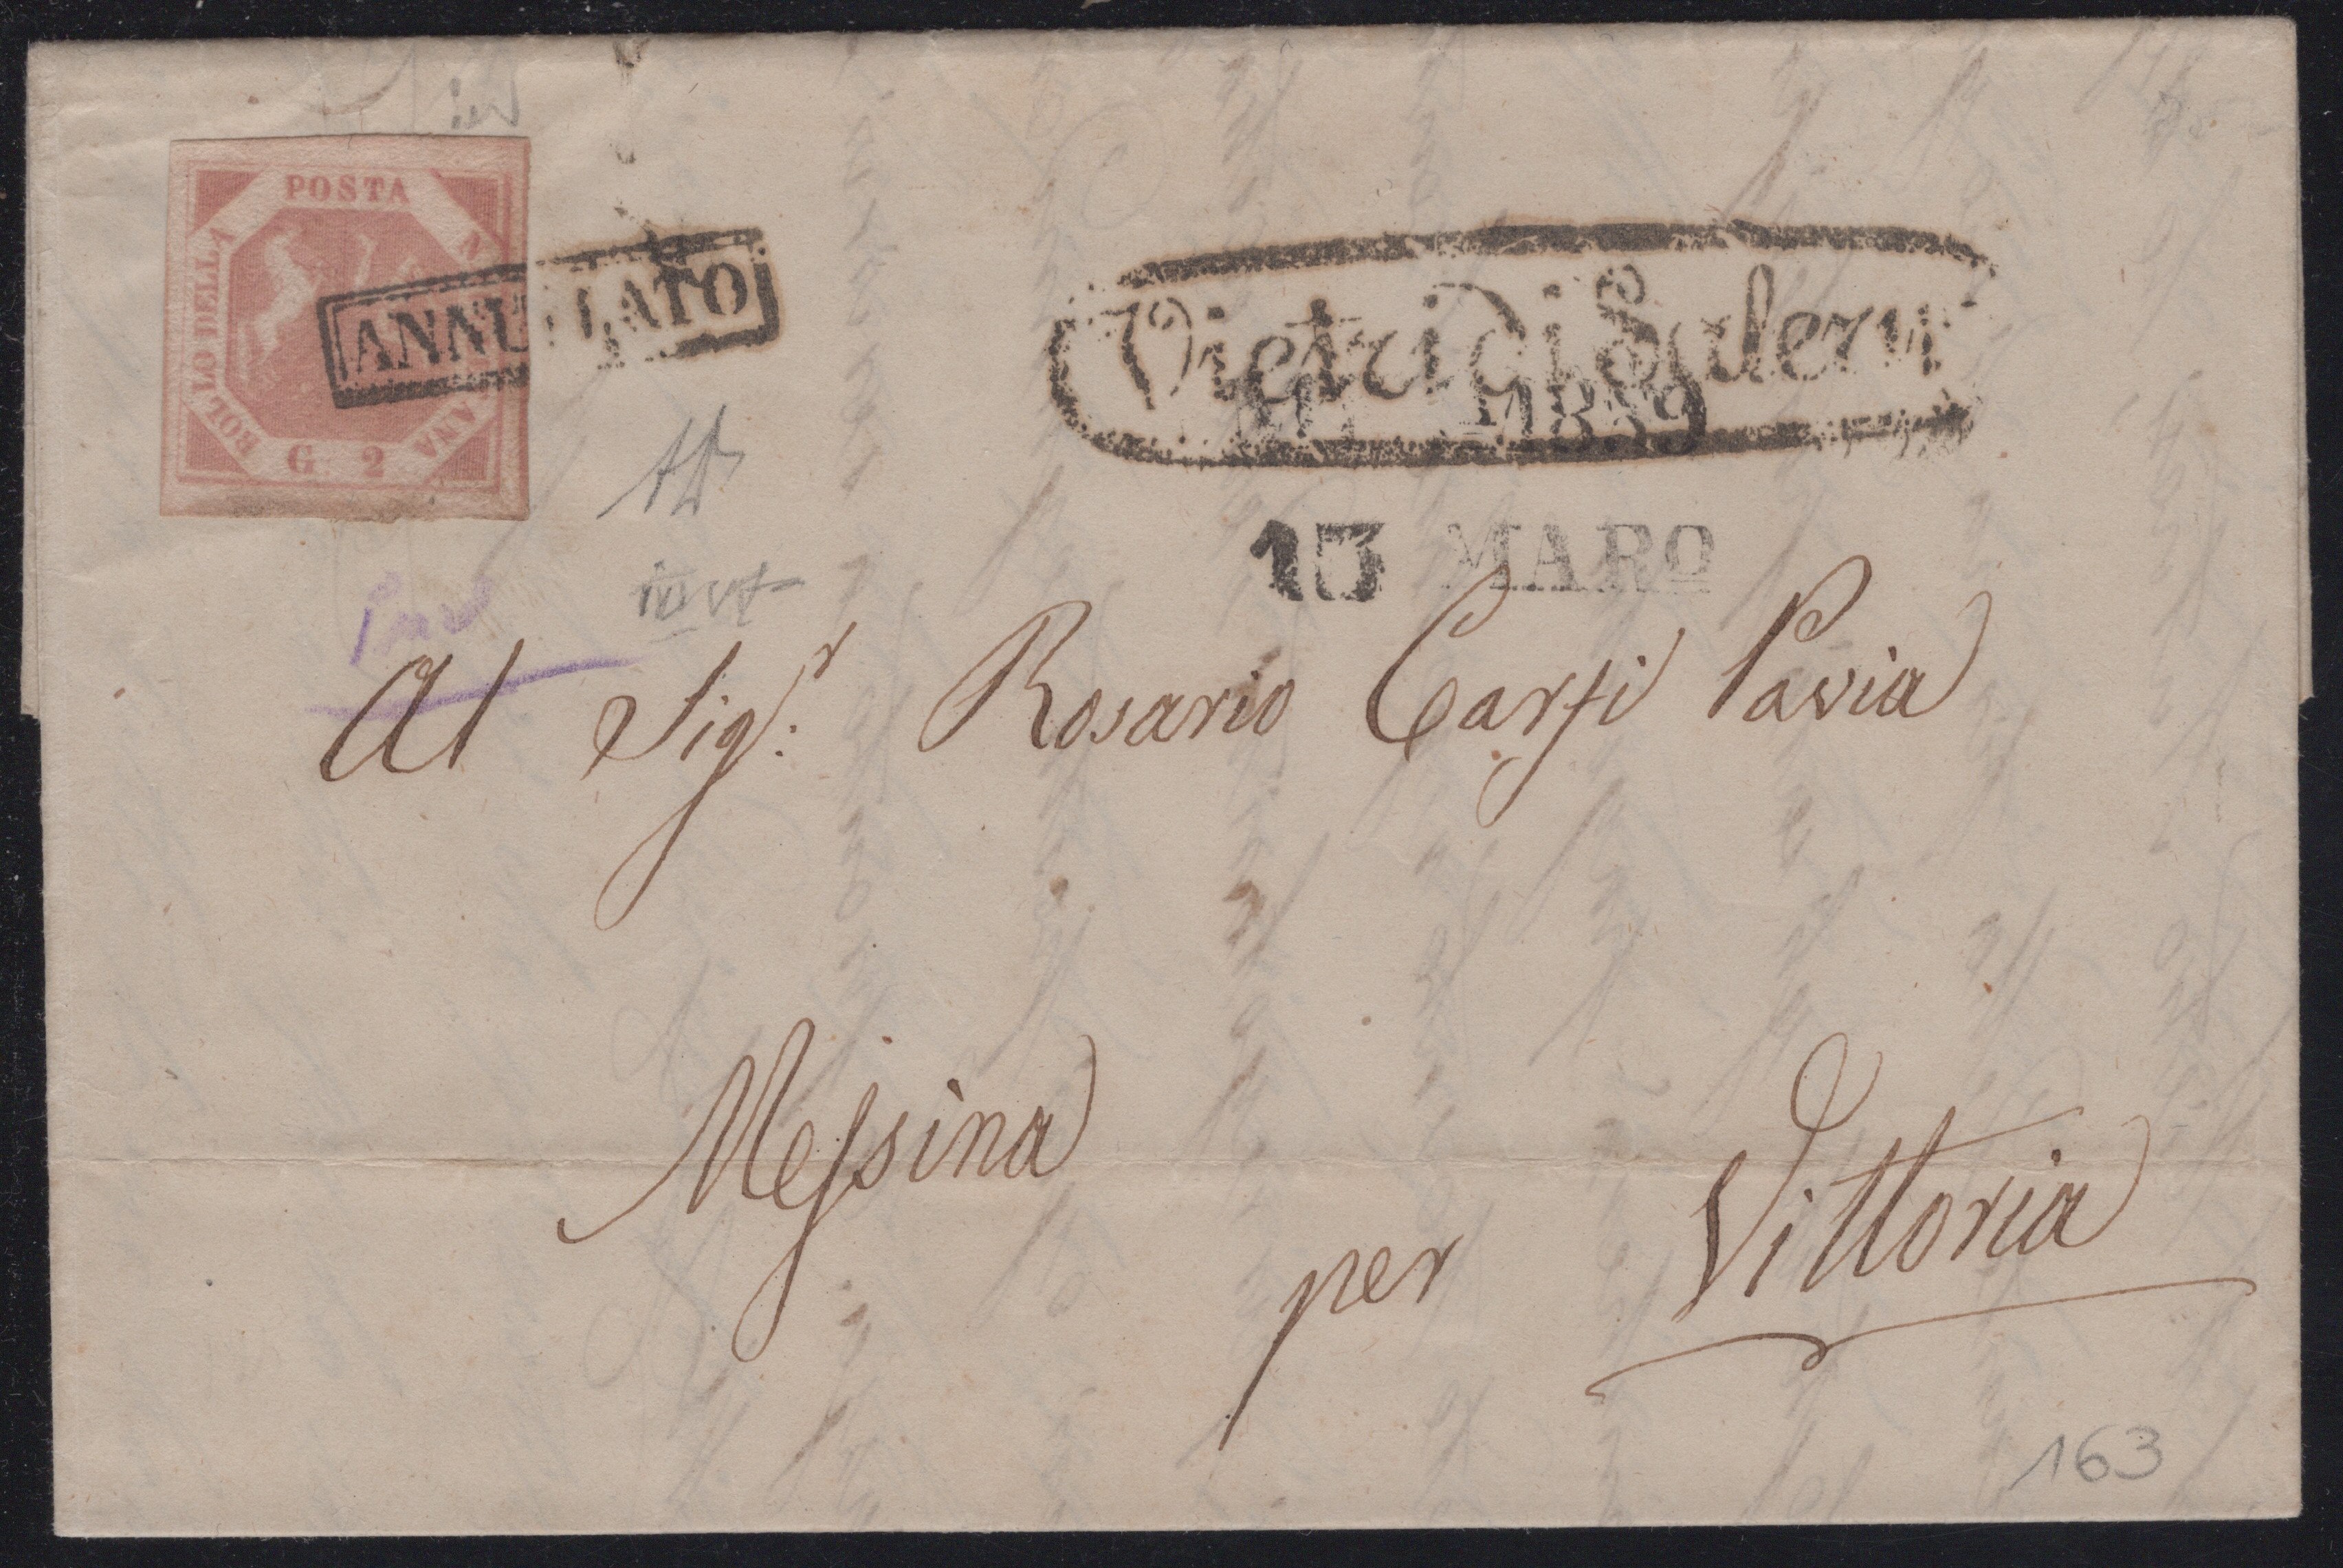 POSTA
NA
ROLLO DELLA
ANA
G. 2
ANNULLATO
Vietri di Salern
1859
MARO
Al Sig.r Rosario Carfi Pavia
Messina
per Vittoria
163